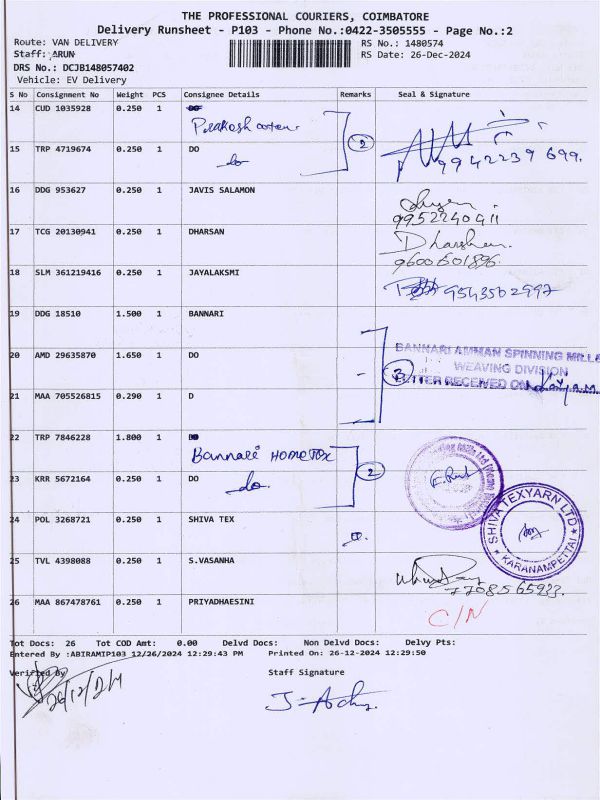 THE PROFESSIONAL COURIERS, COIMBATORE
Delivery Runsheet - P103 - Phone No.:0422-3505555 - Page No.:2
Route: VAN DELIVERY
RS No.: 1480574
Staff: ARUN
RS Date: 26-Dec-2024
DRS No.: DCJB148057402
Vehicle: EV Delivery
S No Consignment No Weight PCS Consignee Details Remarks Seal & Signature
14 CUD 1035928 0.250 1
Prakash
2
9942239699.
15 TRP 4719674 0.250 1 DO
do
16 DDG 953627 0.250 1 JAVIS SALAMON
9952240911
17 TCG 20130941 0.250 1 DHARSAN
Dharshan.
9600501896.
18 SLM 361219416 0.250 1 JAYALAKSMI
9543562997
19 DDG 18510 1.500 1 BANNARI
20 AMD 29635870 1.650 1 DO
3
BANNARI AMMAN SPINNING MILLS
WEAVING DIVISION
LETTER RECEIVED ON
21 MAA 705526815 0.290 1 D
22 TRP 7846228 1.800 1
Bannari HOMETEX
2
23 KRR 5672164 0.250 1 DO
do
24 POL 3268721 0.250 1 SHIVA TEX
SHIVA TEXYARN LTD
KARANAMPETTAI
25 TVL 4398088 0.250 1 S.VASANHA
7708565933.
26 MAA 867478761 0.250 1 PRIYADHAESINI
C/N
Tot Docs: 26 Tot COD Amt: 0.00 Delvd Docs: Non Delvd Docs: Delvy Pts:
Entered By :ABIRAMIP103 12/26/2024 12:29:43 PM Printed On: 26-12-2024 12:29:50
Verified By
26/12/24
Staff Signature